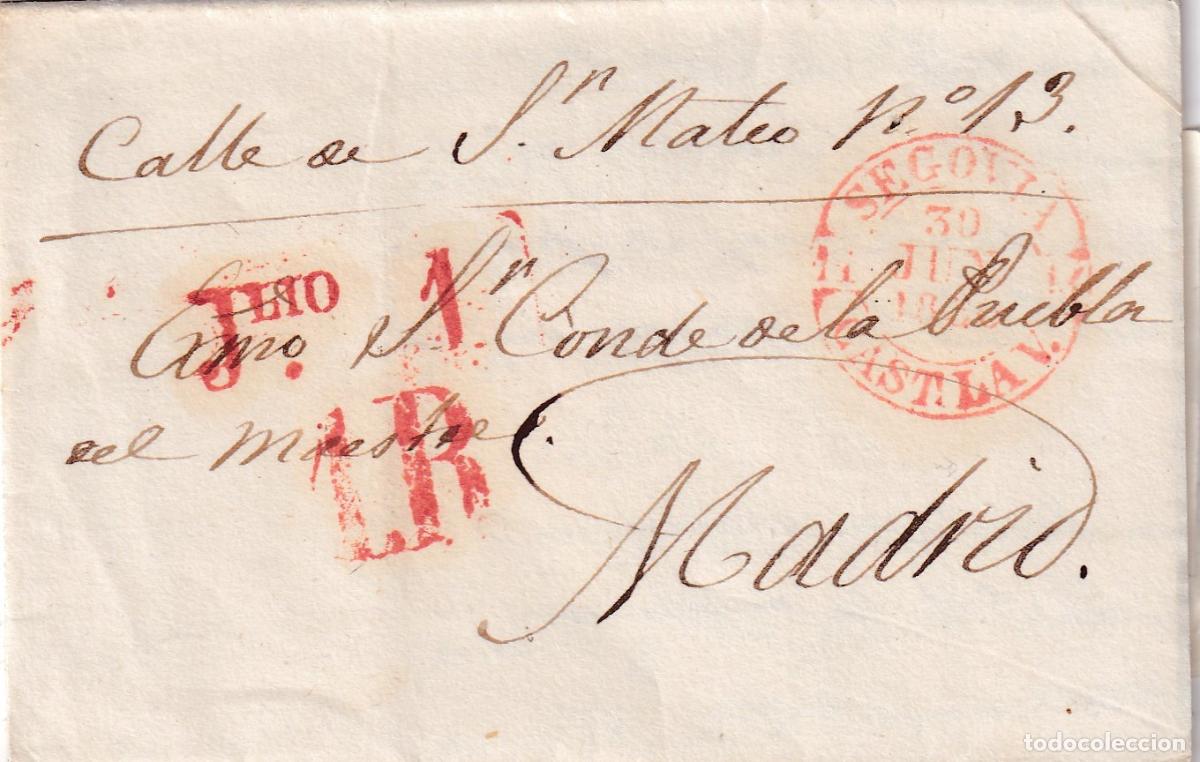 Calle de Sn. Mateo nº 13.
SEGOVIA
30
JUN
18
CAST. LA V.
JLIO 1
Exmo. Sr. Conde de la Puebla
del Maestre.
1R
Madrid.
todocoleccion